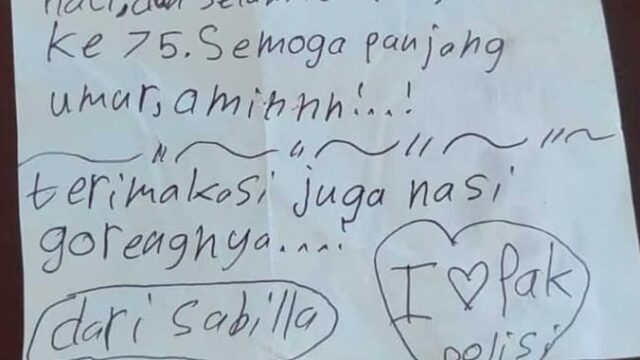 ke 75. Semoga panjang
umur, aminnnh!..!
terimakasi juga nasi
goreagnya....!
dari Sabilla
I ♡ Pak
polisi